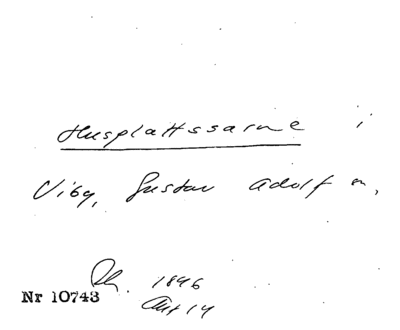 Husplattssarne i
Viby, Gustav Adolf sn,
1896
Nr 10743
14